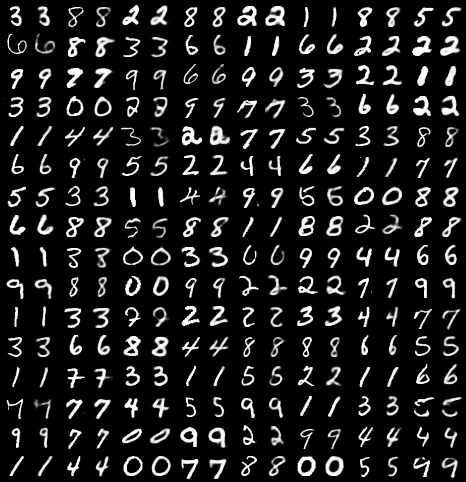 3 3 8 8 2 2 8 8 2 2 1 1 8 8 5 5
6 6 8 8 3 3 6 6 1 1 6 6 2 2 2 2
9 9 7 7 9 9 6 6 9 9 3 3 2 2 1 1
3 3 0 0 2 2 9 9 7 7 3 3 6 6 2 2
1 1 4 4 3 3 2 2 7 7 5 5 3 3 8 8
6 6 9 9 5 5 2 2 4 4 6 6 1 1 7 7
5 5 3 3 1 1 4 4 9 9 5 6 0 0 8 8
6 6 8 8 5 5 8 8 1 1 8 8 2 2 8 8
1 1 8 8 0 0 3 3 0 0 9 9 4 4 6 6
9 9 8 8 0 0 9 9 2 2 2 2 7 7 9 9
1 1 3 3 7 7 2 2 2 2 3 3 4 4 7 7
3 3 6 6 8 8 4 4 8 8 8 8 6 6 5 5
1 1 7 7 3 3 1 1 5 5 2 2 1 1 6 6
7 7 7 7 4 4 5 5 9 9 1 1 3 3 5 5
9 9 7 7 0 0 9 9 2 2 9 9 4 4 4 4
1 1 4 4 0 0 7 7 8 8 0 0 5 5 9 9